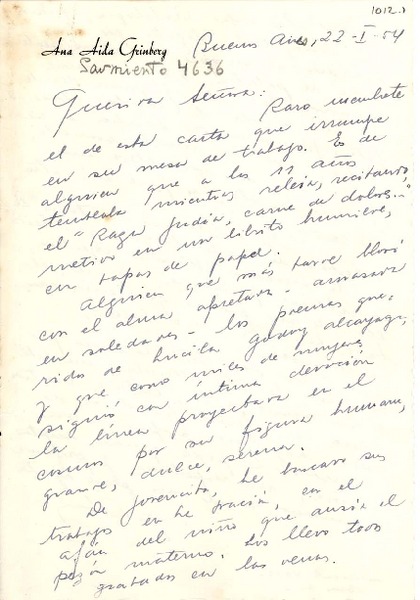 1012.)
Ana Aida Grinberg Buenos Aires, 22-I-54
Sarmiento 4636
Querida Señora:
Raro membrete
el de esta carta que irrumpe
en su mesa de trabajo. Es de
alguien que a los 11 años
temblaba mientras releía, recitando,
el "Raza judía, carne de dolores..."
metido en un librito humilde,
en tapas de papel.
Alguien que más tarde lloró
con el alma apretada - amasada
en soledades - los poemas que-
ridos de Lucila Godoy Alcayaga,
y que como miles de mujeres
siguió con íntima devoción
la línea proyectada en el
cosmos por su figura humana,
grande, dulce, serena.
De jovencita, he buscado sus
trabajos en la prosa, con el
afán del niño que ansía el
pezón materno. Los llevo todos
grabados en las venas.